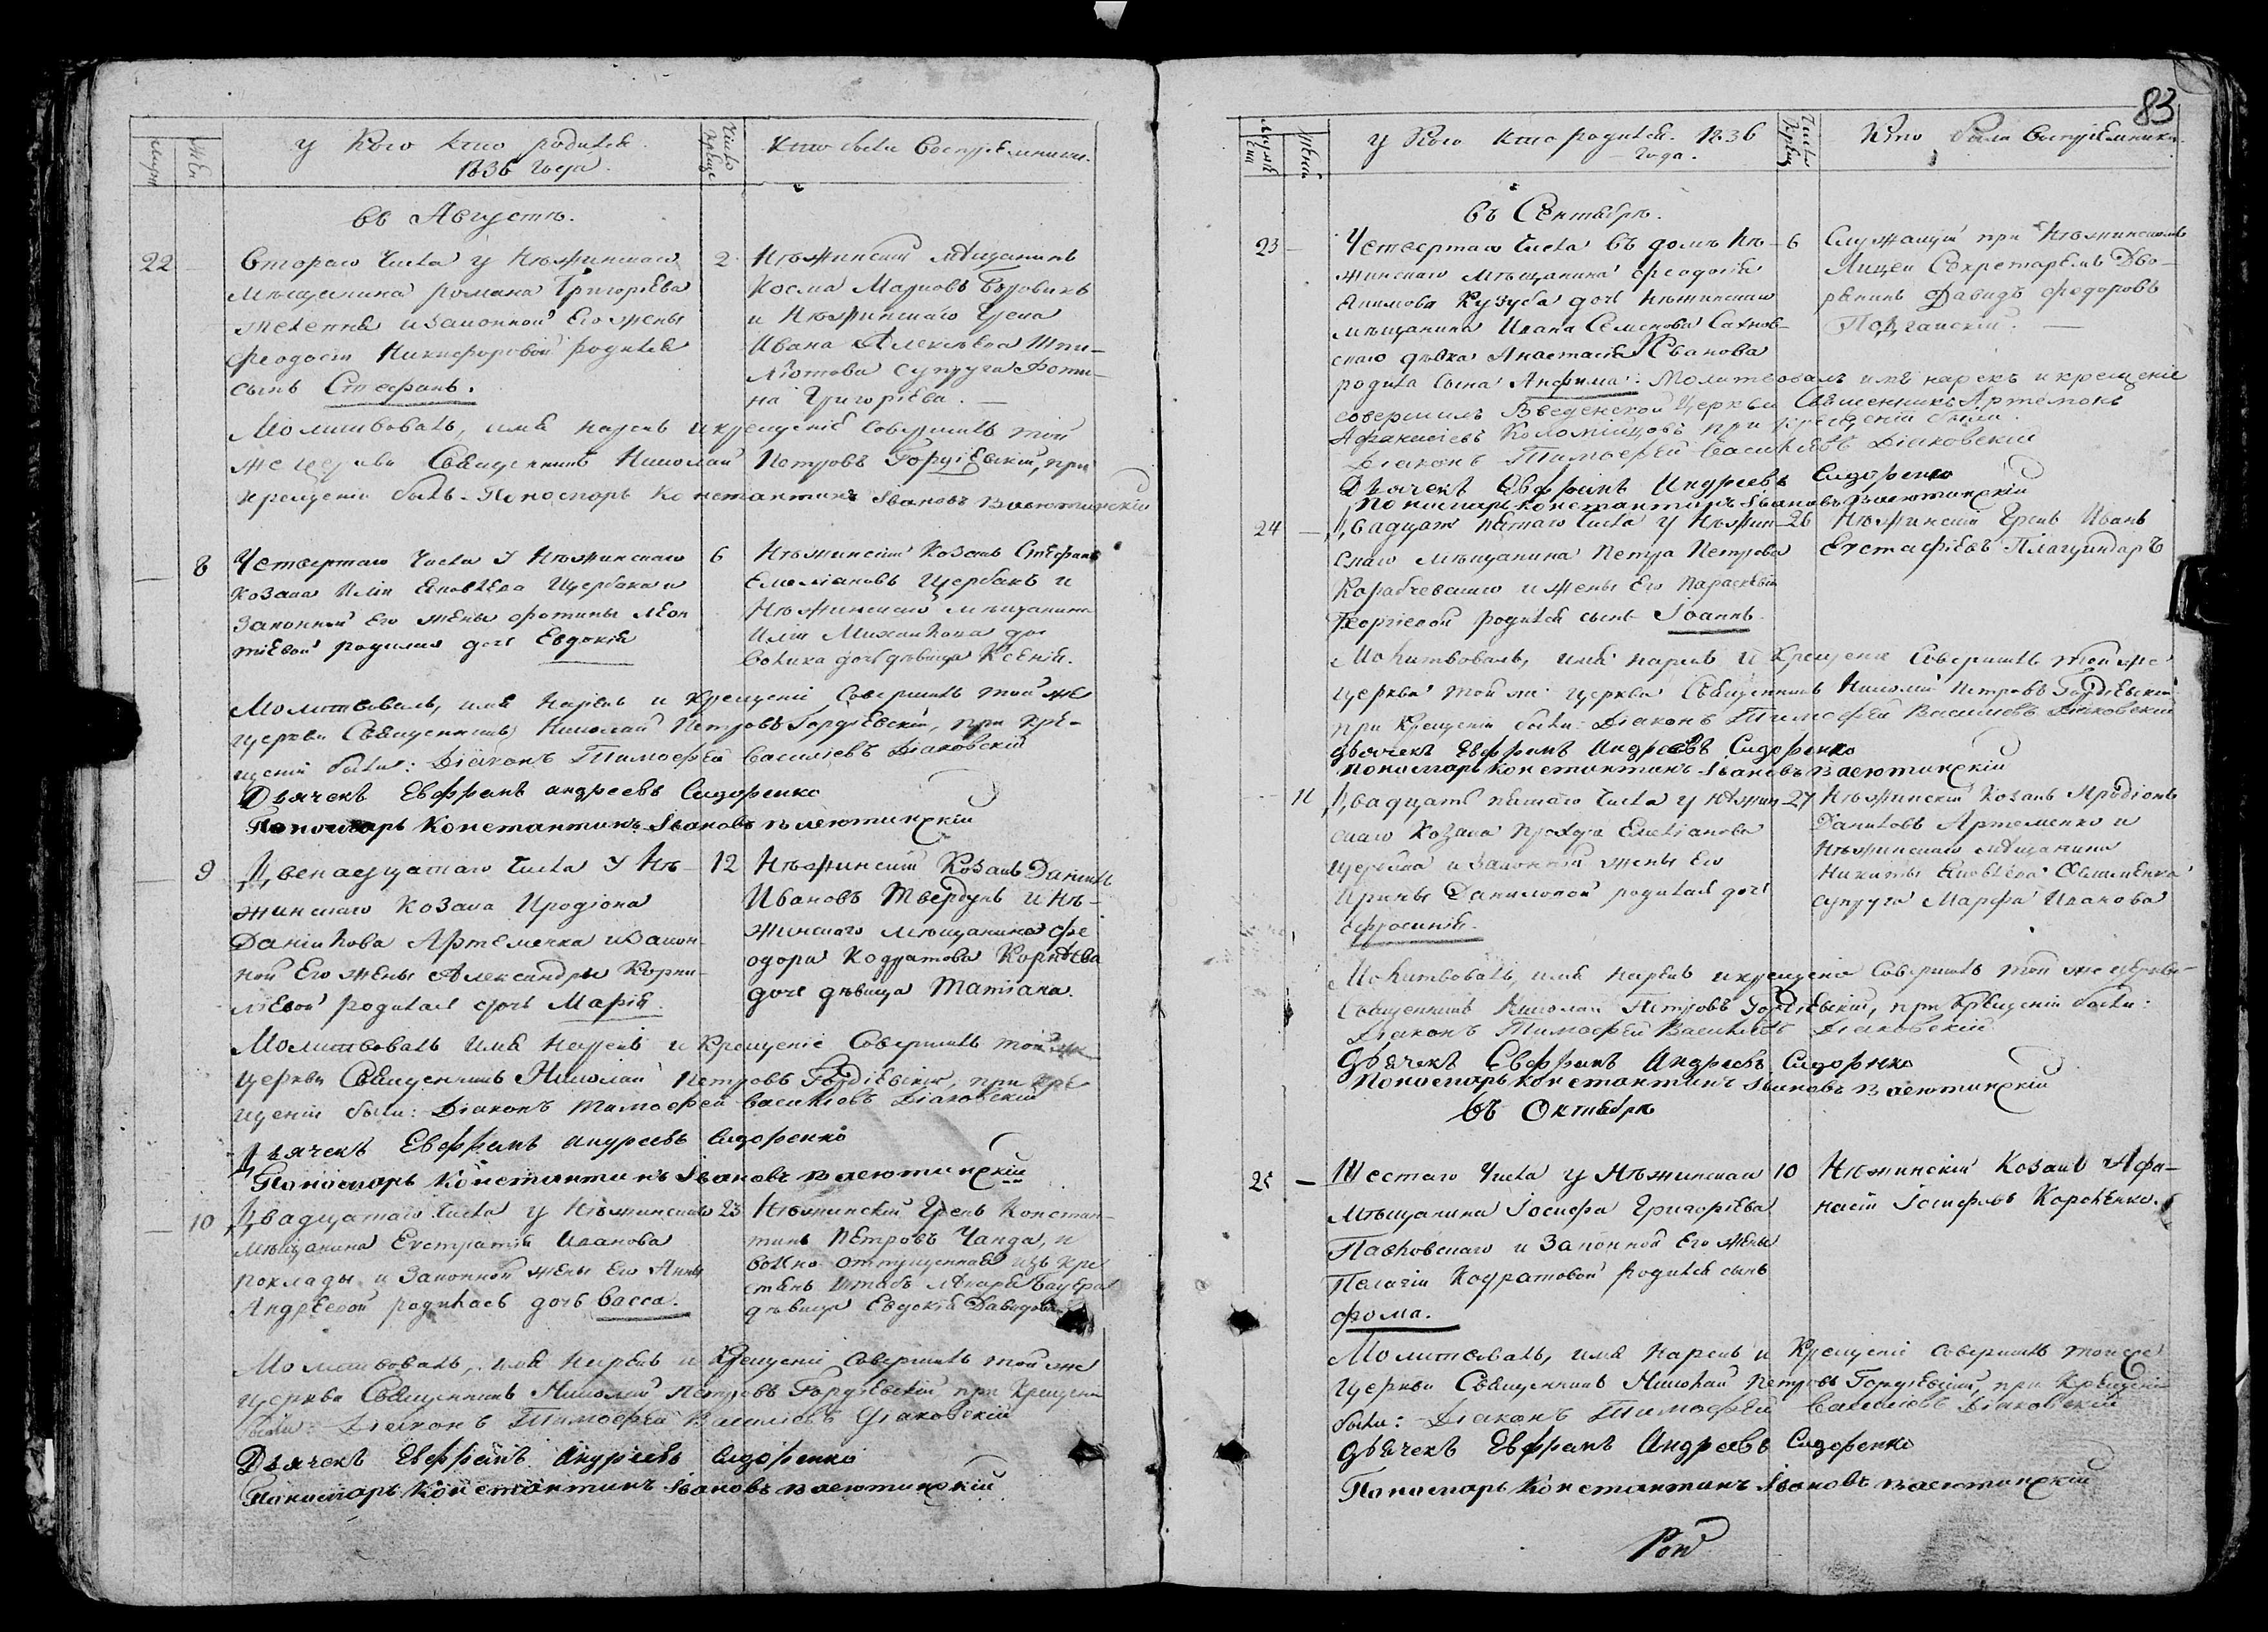 у Кого кто родился
1836 Года.
Число Креще
Кто были Восприемники.
Муж
Жен
въ Августѣ.
22
Втораго Числа у Нѣжинскаго
2
Нѣжинскій мѣщанинъ
мѣщанина Романа Григорьева
Косма
и Законной Его жены
и Нѣжинскаго Грека
Феодосіи Никифоровой родился
Ивана Алексѣева
сынъ Стефанъ.
супруга Фоти-
на Григоріева.
Молитвовалъ, имя нарекъ и крещеніе Совершилъ той
же церкви Священникъ Николай Петровъ Гордіевскій, при
крещеніи былъ Пономарь Константинъ Ивановъ Васютинскій
8
Четвертаго Числа У Нѣжинскаго
6
Нѣжинскій Козакъ Стефанъ
Козака Иліи Яковлева Щербака и
Емеліановъ Щербакъ и
Законной Его жены Фотины Леон
Нѣжинскаго мѣщанина
тіевой родилась дочь Евдокія
Иліи Михайлова
дочь дѣвица Ксенія.
Молитвовалъ, имя Нарекъ и Крещеніе Совершилъ той же
церкви Священникъ Николай Петровъ Гордіевскій, при Кре-
щеніи были: Діаконъ Тимофей Васильевъ Діаковскій
Дьячекъ Евфремъ Андреевъ Сидоренко
Пономарь Константинъ Ивановъ Васютинскій
9
Двенадцатаго Числа У Нѣ-
12
Нѣжинскій Козакъ Даніилъ
жинскаго Козака Иродіона
Ивановъ Твердунъ и Нѣ-
Данійлова Артеменка и Закон-
жинскаго мѣщанина Фе
ной Его жены Александры Корни-
одора Кодратова Корнѣева
ліевой родилась дочь Марія.
дочь дѣвица Татіана.
Молитвовалъ имя Нарекъ и Крещеніе Совершилъ той же
церкви Священникъ Николай Петровъ Гордіевскій, при Кре
щеніи были: Діаконъ Тимофей Васильевъ Діаковскій
Дьячекъ Евфремъ Андреевъ Сидоренко
Пономарь Константинъ Ивановъ Васютинскій
10
Двадцатаго Числа у Нѣжинскаго
23
Нѣжинскій Грекъ Констан-
мѣщанина Евстратія Иванова
тинъ Петровъ Чанда, и
Поклады и Законной жены Его Анны
вольно отпущенная изъ Кре
Андреевой родилась дочь Васса.
стянъ Штабъ Лѣкаря
дѣвица Евдокія Давидова
Молитвовалъ, имя Нарекъ и Крещеніе Совершилъ той же
церкви Священникъ Николай Петровъ Гордіевскій при Крещеніи
были: Діаконъ Тимофей Васильевъ Діаковскій
Дьячекъ Евфремъ Андреевъ Сидоренко
Пономарь Константинъ Ивановъ Васютинскій
83
у Кого кто родился. 1836
Года.
Кто были Восприемники.
въ Сентябрѣ.
23
Четвертаго Числа въ домѣ Нѣ-
6
Служащій при Нѣжинскомъ
жинскаго мѣщанина Феодосія
Лицеи Секретаремъ Дво-
Якимова Кузуба дочь Нѣжинскаго
рянинъ Давидъ Федоровъ
мѣщанина Ивана Семенова Сахнов-
скаго дѣвка Анастасія Иванова
родила Сына Анфима: Молитвовалъ имя нарекъ и крещеніе
совершилъ Введенской Церкви Священникъ Артемонъ
Афанасіевъ Коломійцовъ при крещеніи были
Діаконъ Тимофей Васильевъ Діаковскій
Дьячекъ Евфремъ Андреевъ Сидоренко
Пономарь Константинъ Ивановъ Васютинскій
24
Двадцать пятаго Числа у Нѣжин-
26
Нѣжинскій Грекъ Иванъ
скаго мѣщанина Петра Петрова
Евстафіевъ Плагциндаръ
Карабчевскаго и жены Его Параскевіи
Георгіевой родился сынъ Іоаннъ.
Молитвовалъ, имя нарекъ и Крещеніе Совершилъ той же
церкви той же церкви Священникъ Николай Петровъ Гордіевскій
при Крещеніи были: Діаконъ Тимофей Васильевъ Діаковскій
Дьячекъ Евфремъ Андреевъ Сидоренко
Пономарь Константинъ Ивановъ Васютинскій
11
Двадцать пятаго Числа у Нѣжин
27
Нѣжинскій Козакъ Иродіонъ
скаго Козака Емеліанова
Даниловъ Артеменко и
и Законной жены Его
Нѣжинскаго мѣщанина
Ирины Даниловой родилась дочь
Никиты Яковлева
Ефросинія.
супруга Марфа Иванова
Молитвовалъ, имя Нарекъ и крещеніе Совершилъ той же церкви
Священникъ Николай Петровъ Гордіевскій, при Крещеніи были:
Діаконъ Тимофей Васильевъ Діаковскій
Дьячекъ Евфремъ Андреевъ Сидоренко
Пономарь Константинъ Ивановъ Васютинскій
въ Октябрѣ
25
Шестаго Числа у Нѣжинскаго
10
Нѣжинскій Козакъ Афа-
Мѣщанина Іосифа Григоріева
насій Іосифовъ Короленко.
Павловскаго и Законной Его жены
Пелагіи Кодратовой родился сынъ
Фома.
Молитвовалъ, имя Нарекъ и Крещеніе совершилъ той же
Церкви Священникъ Николай Петровъ Гордіевскій, при Крещеніи
были: Діаконъ Тимофей Васильевъ Діаковскій
Дьячекъ Евфремъ Андреевъ Сидоренко
Пономарь Константинъ Ивановъ Васютинскій